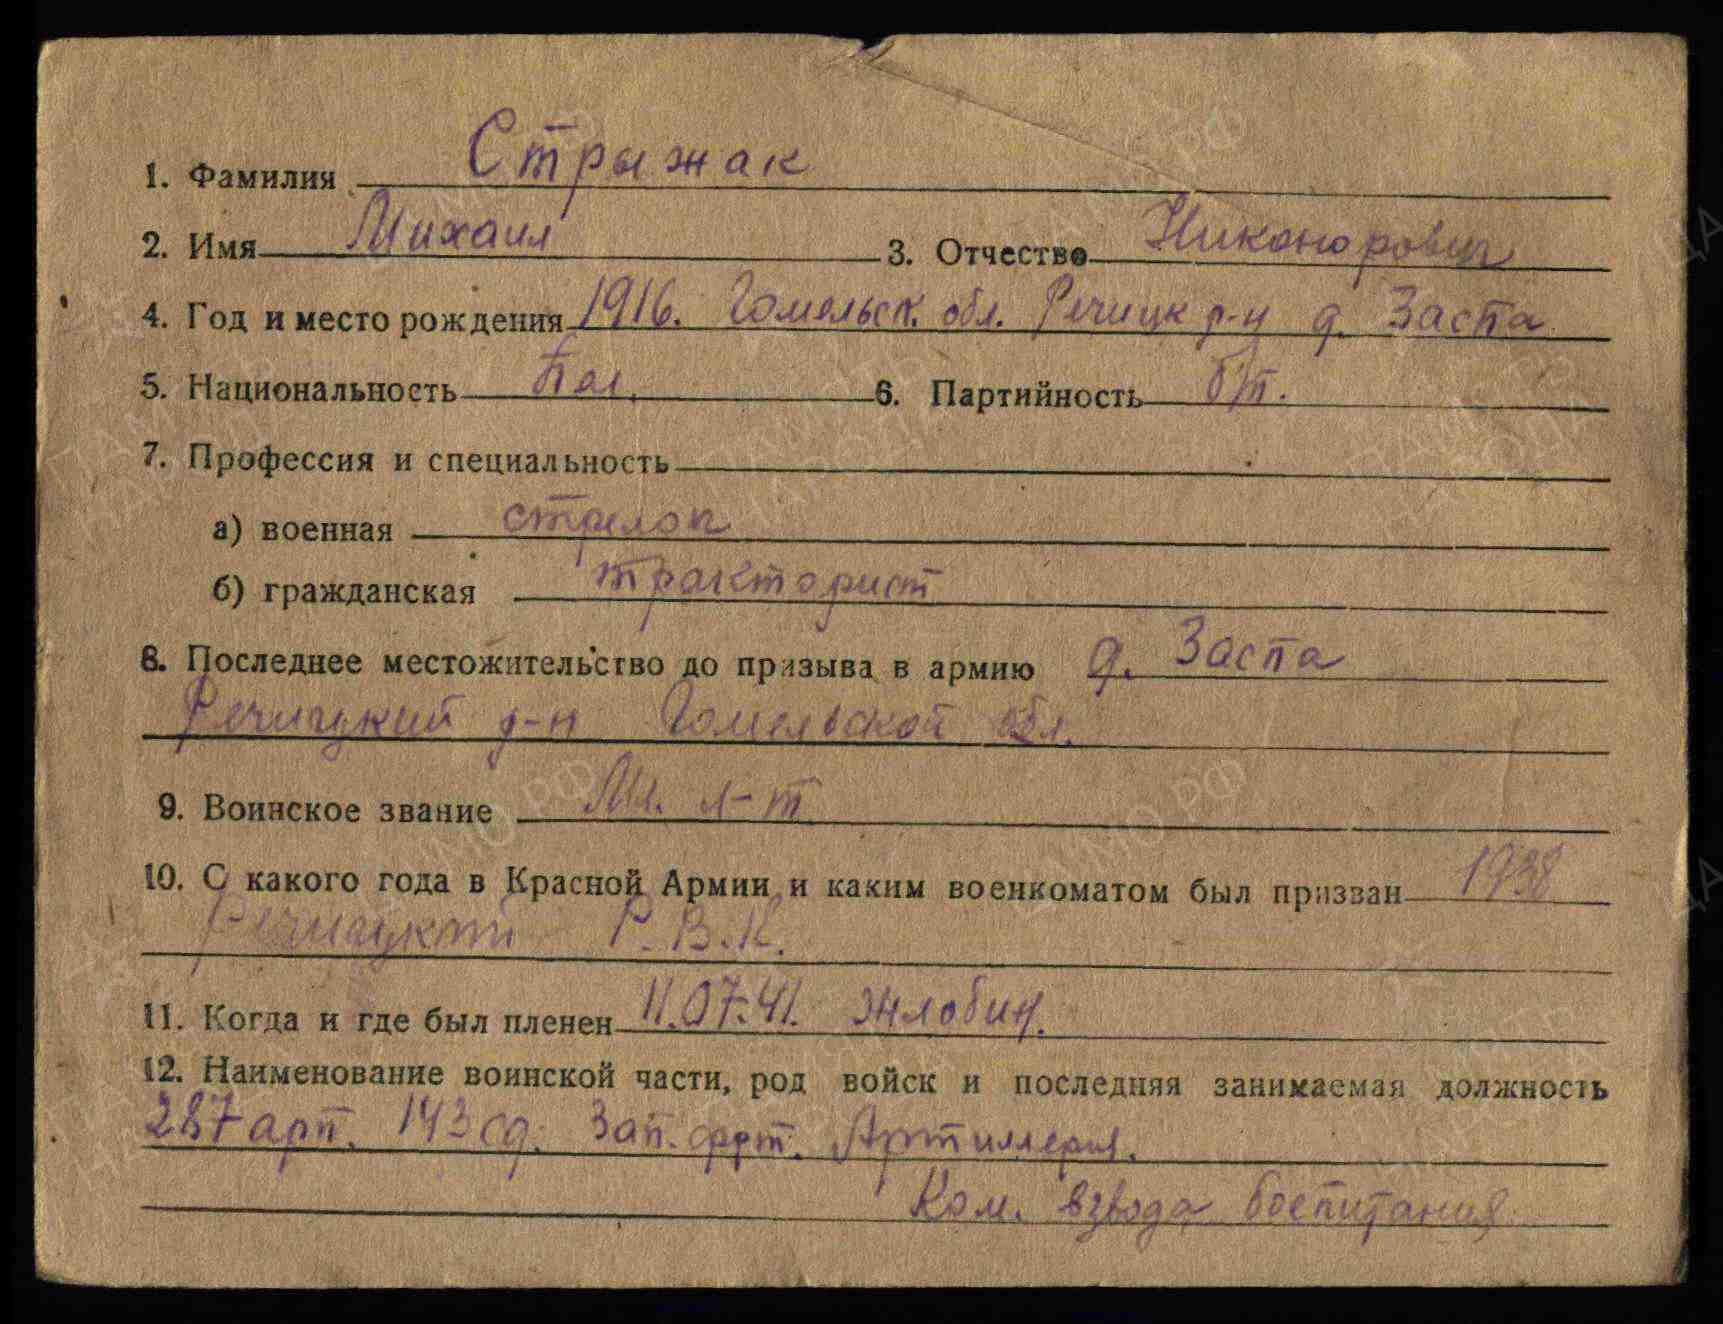 1. Фамилия Стрыжак
2. Имя Михаил 3. Отчество Никонорович
4. Год и место рождения 1916. Гомельск. обл. Речицк р-н д. Заспа
5. Национальность Бел. 6. Партийность б/п.
7. Профессия и специальность
а) военная стрелок
б) гражданская тракторист
8. Последнее местожительство до призыва в армию д. Заспа
Речицкий р-н Гомельской обл.
9. Воинское звание Мл. л-т
10. С какого года в Красной Армии и каким военкоматом был призван 1938
Речицкий Р.В.К.
11. Когда и где был пленен 11.07.41. Жлобин.
12. Наименование воинской части, род войск и последняя занимаемая должность
287 арт. 143 сд. Зап. фрт. Артиллерия.
Ком. взвода боепитания